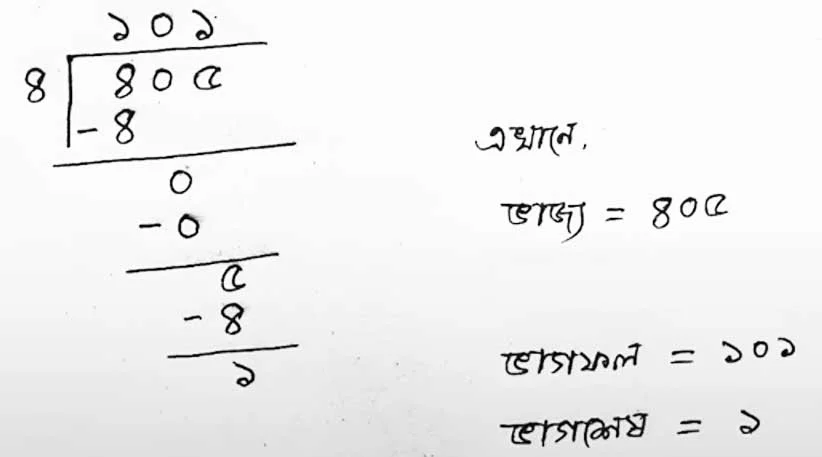 ১০১
৪ ৪০৫
-৪
০
-০
৫
-৪
১
এখানে,
ভাজ্য = ৪০৫
ভাগফল = ১০১
ভাগশেষ = ১